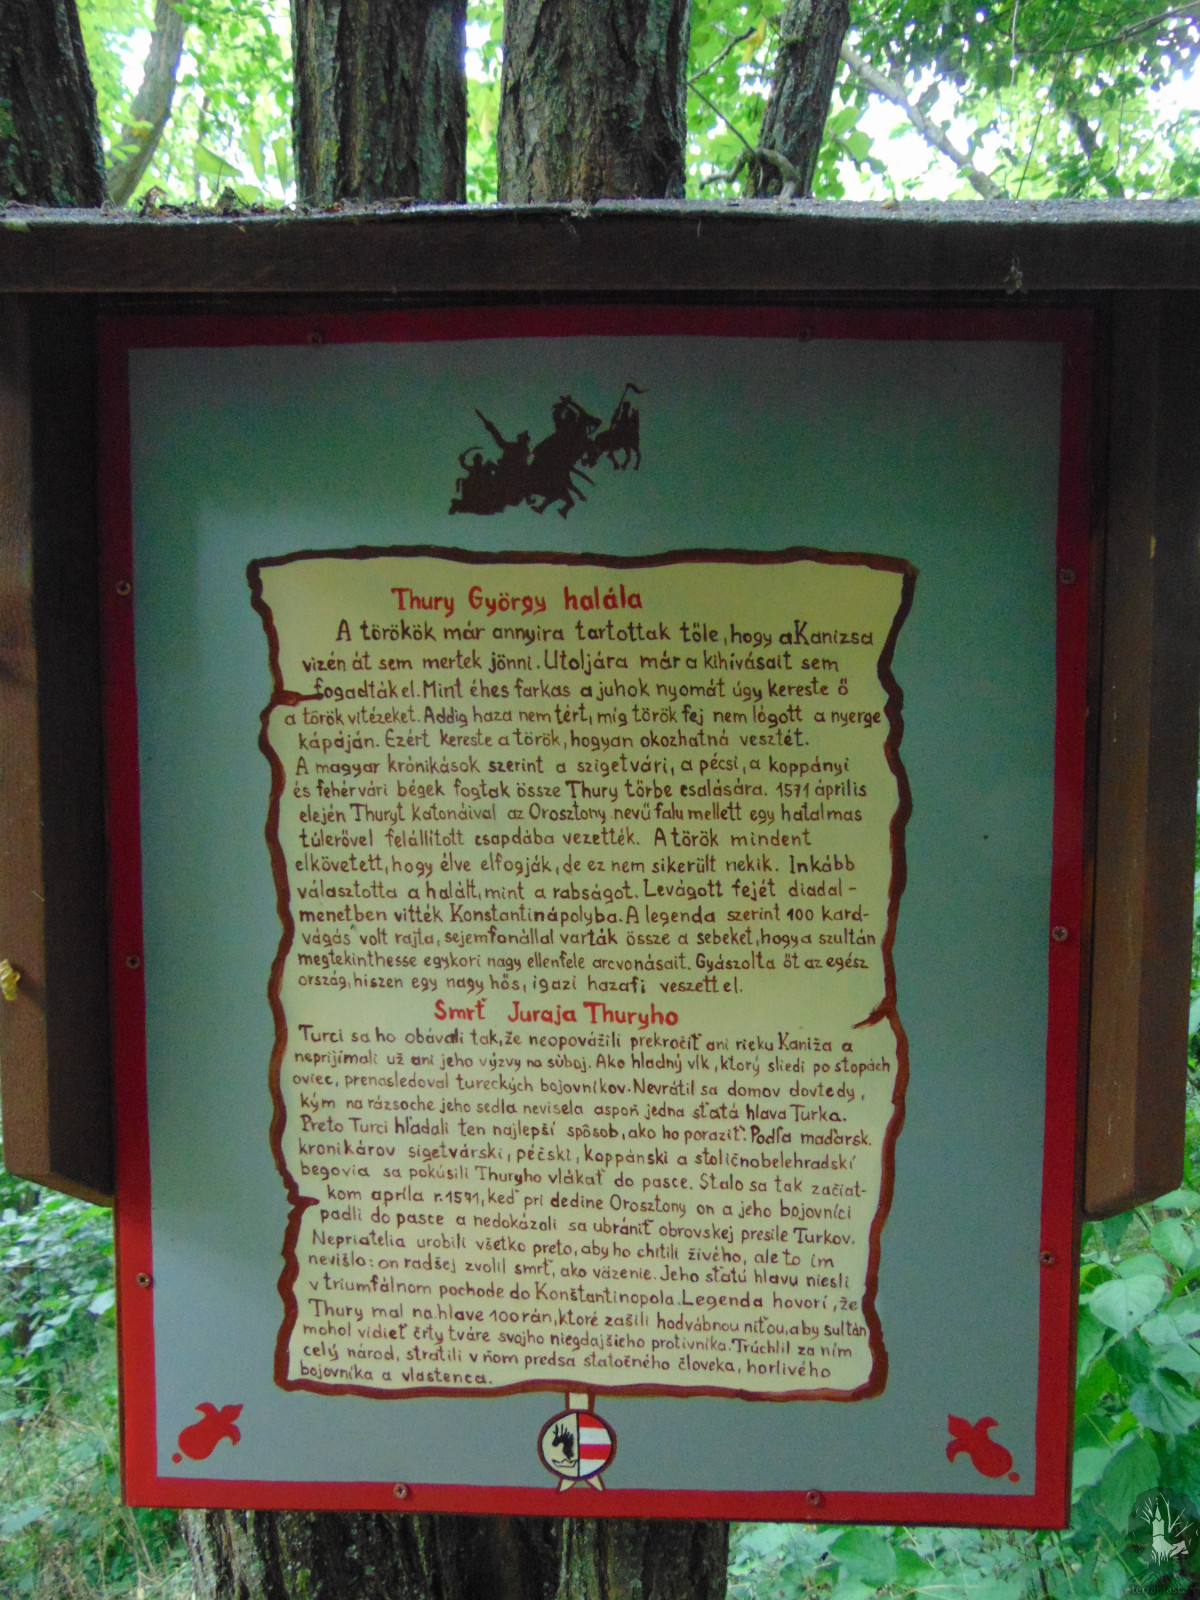 Thury György halála
A törökök már annyira tartottak tőle, hogy a Kanizsa
vizén át sem mertek jönni. Utoljára már a kihívásait sem
fogadták el. Mint éhes farkas a juhok nyomát úgy kereste ő
a török vitézeket. Addig haza nem tért, míg török fej nem lógott a nyerge
kápáján. Ezért kereste a török, hogyan okozhatná vesztét.
A magyar krónikások szerint a szigetvári, a pécsi, a koppányi
és fehérvári bégek fogtak össze Thury tőrbe csalására. 1571 április
elején Thuryt katonáival az Orosztony nevű falu mellett egy hatalmas
túlerővel felállított csapdába vezették. A török mindent
elkövetett, hogy élve elfogják, de ez nem sikerült nekik. Inkább
választotta a halált, mint a rabságot. Levágott fejét diadal-
menetben vitték Konstantinápolyba. A legenda szerint 100 kard-
vágás volt rajta, sejemfonállal varták össze a sebeket, hogy a szultán
megtekinthesse egykori nagy ellenfele arcvonásait. Gyászolta őt az egész
ország, hiszen egy nagy hős, igazi hazafi veszett el.
Smrť Juraja Thuryho
Turci sa ho obávali tak, že neopovážili prekročiť ani rieku Kaniža a
neprijímali už ani jeho výzvy na súboj. Ako hladný vlk, ktorý sliedi po stopách
oviec, prenasledoval tureckých bojovníkov. Nevrátil sa domov dovtedy,
kým na rázsoche jeho sedla nevisela aspoň jedna sťatá hlava Turka.
Preto Turci hľadali ten najlepší spôsob, ako ho poraziť. Podľa maďarsk.
kronikárov sigetvárski, péčski, koppánski a stoličnobelehradskí
begovia sa pokúsili Thuryho vlákať do pasce. Stalo sa tak začiat-
kom apríla r. 1571, keď pri dedine Orosztony on a jeho bojovníci
padli do pasce a nedokázali sa ubrániť obrovskej presile Turkov.
Nepriatelia urobili všetko preto, aby ho chitili živého, ale to im
nevišlo: on radšej zvolil smrť, ako väzenie. Jeho sťatú hlavu niesli
v triumfálnom pochode do Konštantinopola. Legenda hovorí, že
Thury mal na hlave 100 rán, ktoré zašili hodvábnou niťou, aby sultán
mohol vidieť črty tváre svojho niegdajšieho protivníka. Trúchlil za ním
celý národ, stratili v ňom predsa statočného človeka, horlivého
bojovníka a vlastenca.